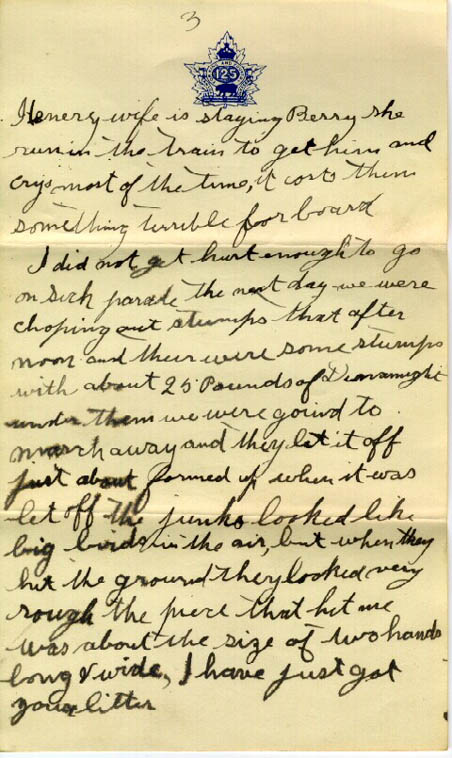 3
AND
125
Henery wife is staying Berry she
runin the train to get him and
crys most of the time, it costs them
something terrible foor board
I did not get hurt enought to go
on sick parade the next day we were
choping out stumps that after
noon and their were some stumps
with about 25 Pounds of
under them we were goind to
march away and they let it off
just about formed up when it was
let off the junks looked like
big birds in the air, but when they
hit the ground they looked very
rough the piece that hit me
was about the size of two hands
long & wide, I have just got
your litter